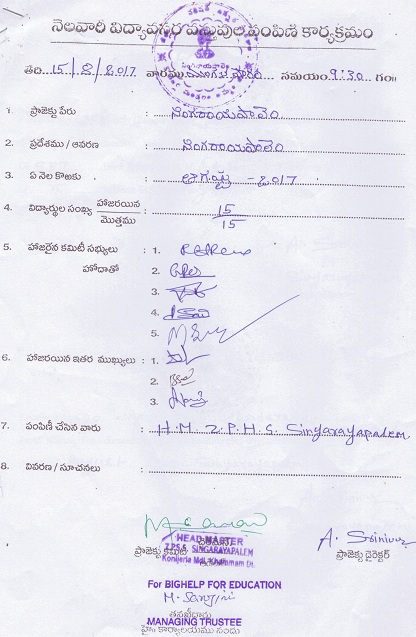 నెలవారీ విద్యావసర వస్తువుల పంపిణీ కార్యక్రమం
తేది 15/8/2017 వారము మంగళవారం సమయం 9:30 గం॥
1. ప్రాజెక్టు పేరు : సింగరాయపాలెం
2. ప్రదేశము / ఆవరణ : సింగరాయపాలెం
3. ఏ నెల కొఱకు : ఆగష్టు - 2017
4. విద్యార్థుల సంఖ్య హాజరయిన / మొత్తము : 15/15
5. హాజరైన కమిటీ సభ్యులు : 1.
హోదాతో 2.
3.
4.
5.
6. హాజరయిన ఇతర ముఖ్యులు : 1.
2.
3.
7. పంపిణీ చేసిన వారు : H.M. Z.P.H.S. Singarayapalem
8. వివరణ / సూచనలు :
HEAD MASTER
Z.P.S.S. SINGARAYAPALEM
ప్రాజెక్టు కమిటీ
Konijerla Mdl. Khammam Dt.
A. Srinivas
ప్రాజెక్టు డైరెక్టర్
For BIGHELP FOR EDUCATION
M. Sarojini
MANAGING TRUSTEE
హై॥ కార్యాలయము నందు